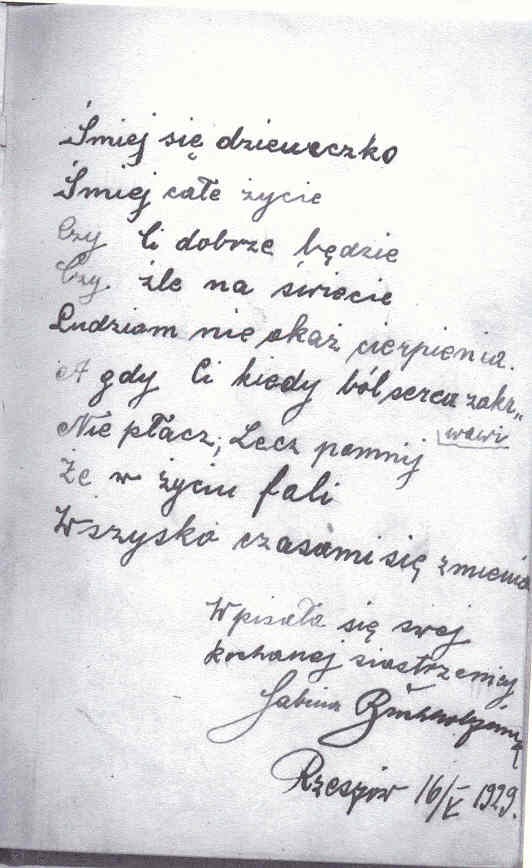 Śmiej się dzieweczko
Śmiej całe życie
Czy Ci dobrze będzie
Czy źle na świecie
Ludziom nie okaż cierpienia.
A gdy Ci kiedy ból serca zakr„
wawi
Nie płacz, Lecz pomnij
Że w życiu fali
Wszysko czasami się zmienia
Wpisała się swej
kochanej siostrzenicy
Sabina
Rzeszów 16/V 1929.